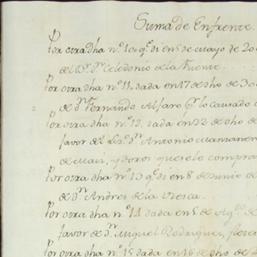 Suma de Enfrente
Por otra dha nº 10 qº di en 5 de Mayo de 20
de Dn Celedonio de la Fuente
Por otra dha nº 11 dada en 17 de dho de 30
de Dn Fernando Alfaro pr lo causado
Por otra dha nº 12 dada en 22 de dho de
favor de Dn Antonio
de y otros que le compra
Por otra dha nº 13 qº di en 8 de Junio de
de Dn Andres de la
Por otra dha nº 14 dada en 5 de Agto
favor de Dn Miguel Rodriguez
Por otra dha nº 15 dada en 16 de dho de